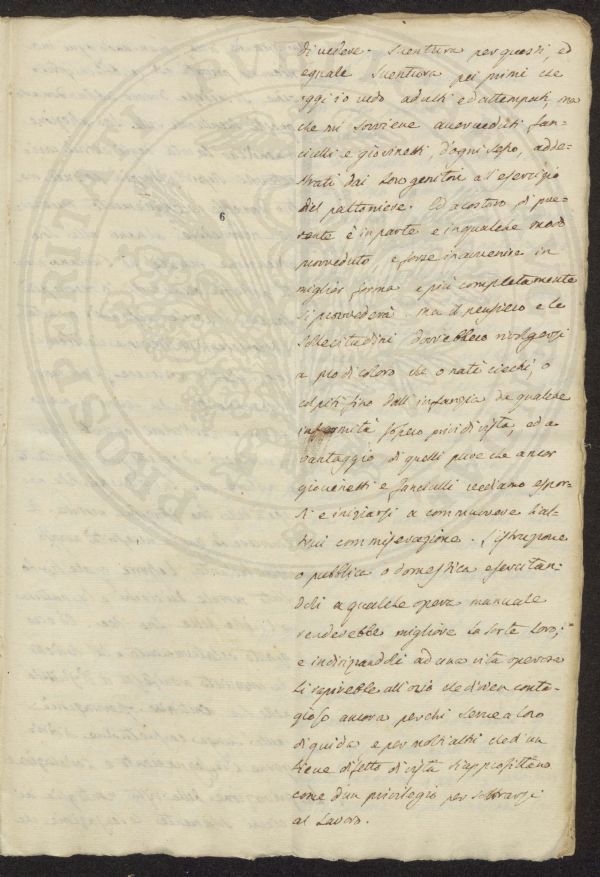 di vedere. Sventura per questi, ed
eguale Sventura pei primi che
oggi io vedo adulti ed attempati, ma
che mi sovviene aver veduti fan-
ciulli e giovinetti, d'ogni sesso, adde-
strati dai loro genitori all'esercizio
del paltoniere. Ed a costoro di pre-
sente è in parte e in qualche modo
6
provveduto e forse in avvenire in
miglior forma e più completamente
si provvederà. Ma il pensiero e le
Sollecitudini dovrebbero rivolgersi
a pro di coloro che o nati ciechi, o
colpiti fino dall'infanzia da qualche
infermità sono privi di vista, ed a
vantaggio di quelli pure che ancor
giovinetti e fanciulli vediamo espor-
si e iniziarsi a commuovere l'al-
trui commiserazione. L'istruzione
o pubblica o domestica esercitan-
doli a qualche opera manuale
renderebbe migliore la sorte loro;
e indirizzandoli ad una vita operosa
li rapirebbe all'ozio che divien conta-
gioso ancora per chi serve a loro
di guida e per molti altri che d'un
lieve difetto di vista s'approfittano
come d'un privilegio per sottrarsi
al Lavoro.